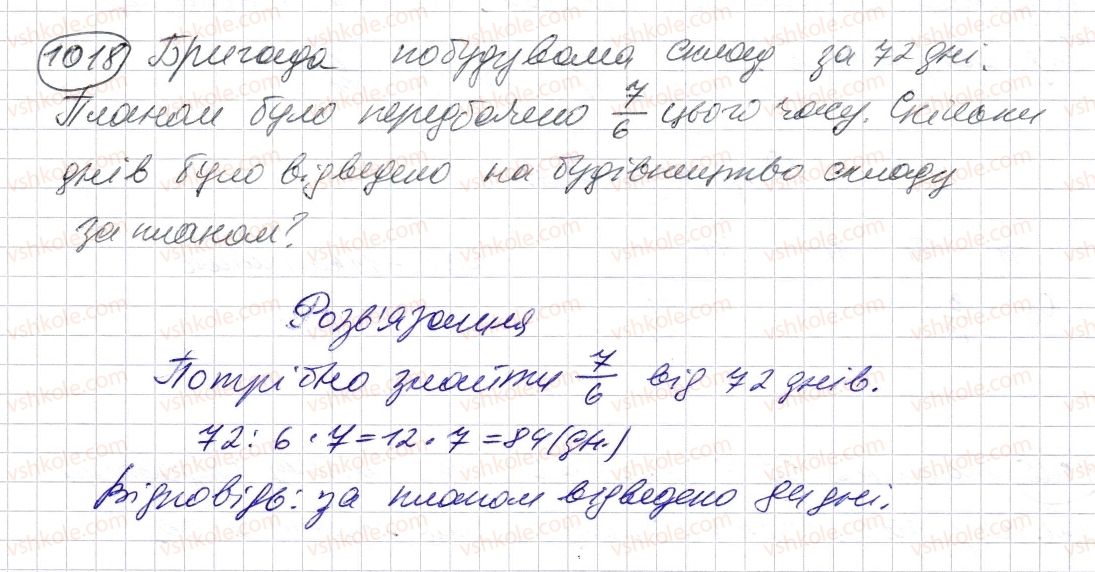 1018 Бригада побудувала склад за 72 дні.
Планом було передбачено 7/6 цього часу. Скільки
днів було відведено на будівництво складу
за планом?
Розв'язання
Потрібно знайти 7/6 від 72 днів.
72 : 6 · 7 = 12 · 7 = 84 (дн.)
Відповідь: за планом відведено 84 дні.